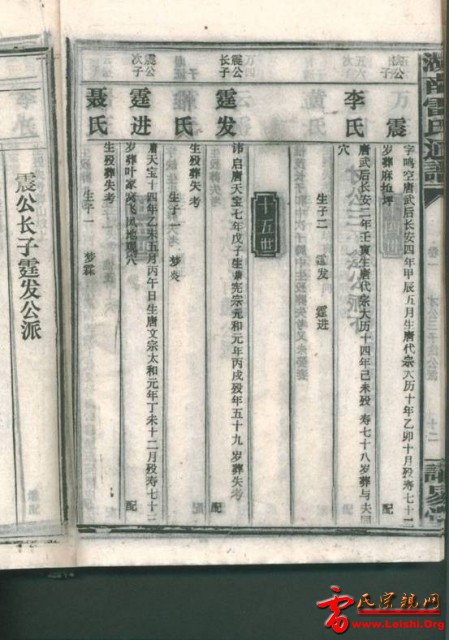 湖南雷氏通谱
卷一
十二
万震
字鸣空唐武后长安四年甲辰五月生唐代宗大历十年乙卯十月殁寿七十二
岁葬麻拉坪
配
李氏
唐武后长安二年壬寅生唐代宗大历十四年己未殁 寿七十八岁葬与夫同
穴
生子二 霆发 霆进
十五世
震公长子
霆发
讳启唐天宝七年戊子生唐宪宗元和元年丙戌殁年五十九岁葬失考
配
氏
生殁葬失考
生子一 梦炎
震公次子
霆进
唐天宝十四年乙未五月丙午日生唐文宗太和元年丁未十二月殁寿七十二
岁葬叶家 飞凤地 穴
配
聂氏
生殁葬失考
生子一 梦霖
震公长子霆发公派
雷氏宗亲网
www.Leishi.Org